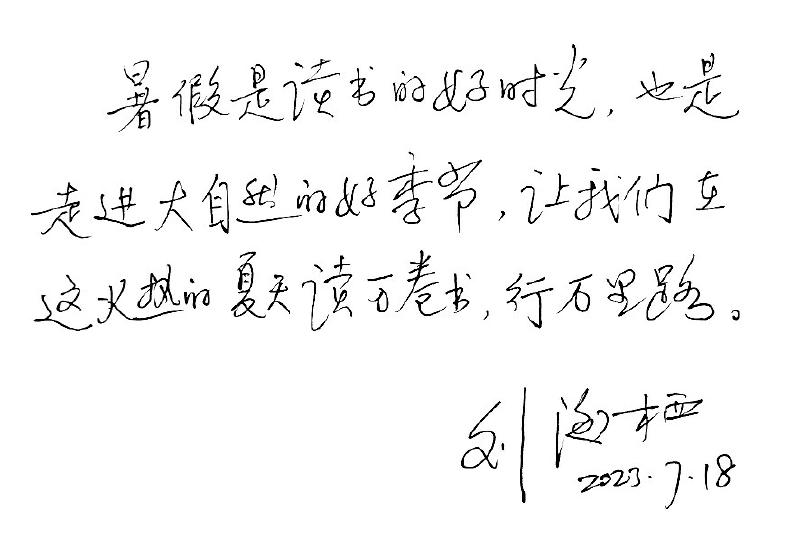 暑假是读书的好时光，也是
走进大自然的好季节，让我们在
这火热的夏天读万卷书，行万里路。
刘海栖
2023.7.18